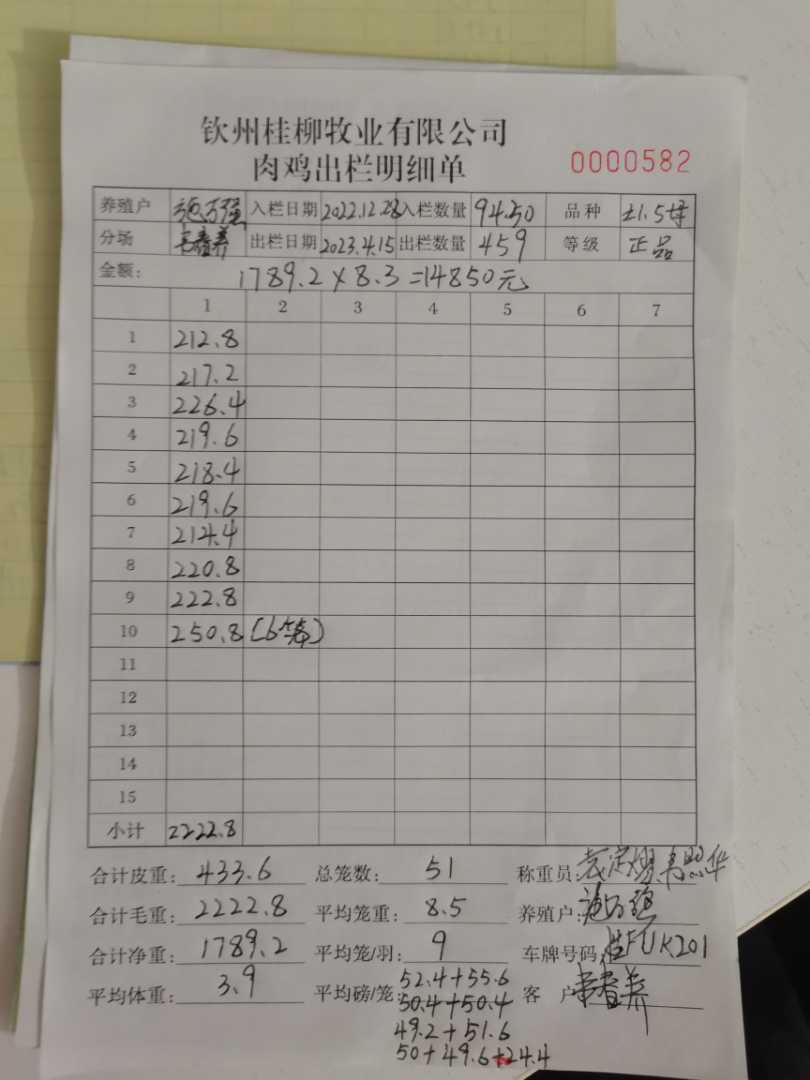 钦州桂柳牧业有限公司
肉鸡出栏明细单 0000582
养殖户 施万强 入栏日期 2022.12.28 入栏数量 9450 品种 土1.5母
分场 出栏日期 2023.4.15 出栏数量 459 等级 正品
金额: 1789.2×8.3=14850元
1 2 3 4 5 6 7
1 212.8
2 217.2
3 226.4
4 219.6
5 218.4
6 219.6
7 214.4
8 220.8
9 222.8
10 250.8 (6笼)
11
12
13
14
15
小计 2222.8
合计皮重: 433.6 总笼数: 51 称重员:
合计毛重: 2222.8 平均笼重: 8.5 养殖户: 施万强
合计净重: 1789.2 平均笼/羽: 9 车牌号码: 桂FUK201
平均体重: 3.9 平均磅/笼: 52.4+55.6 客 户
50.4+50.4
49.2+51.6
50+49.6+24.4